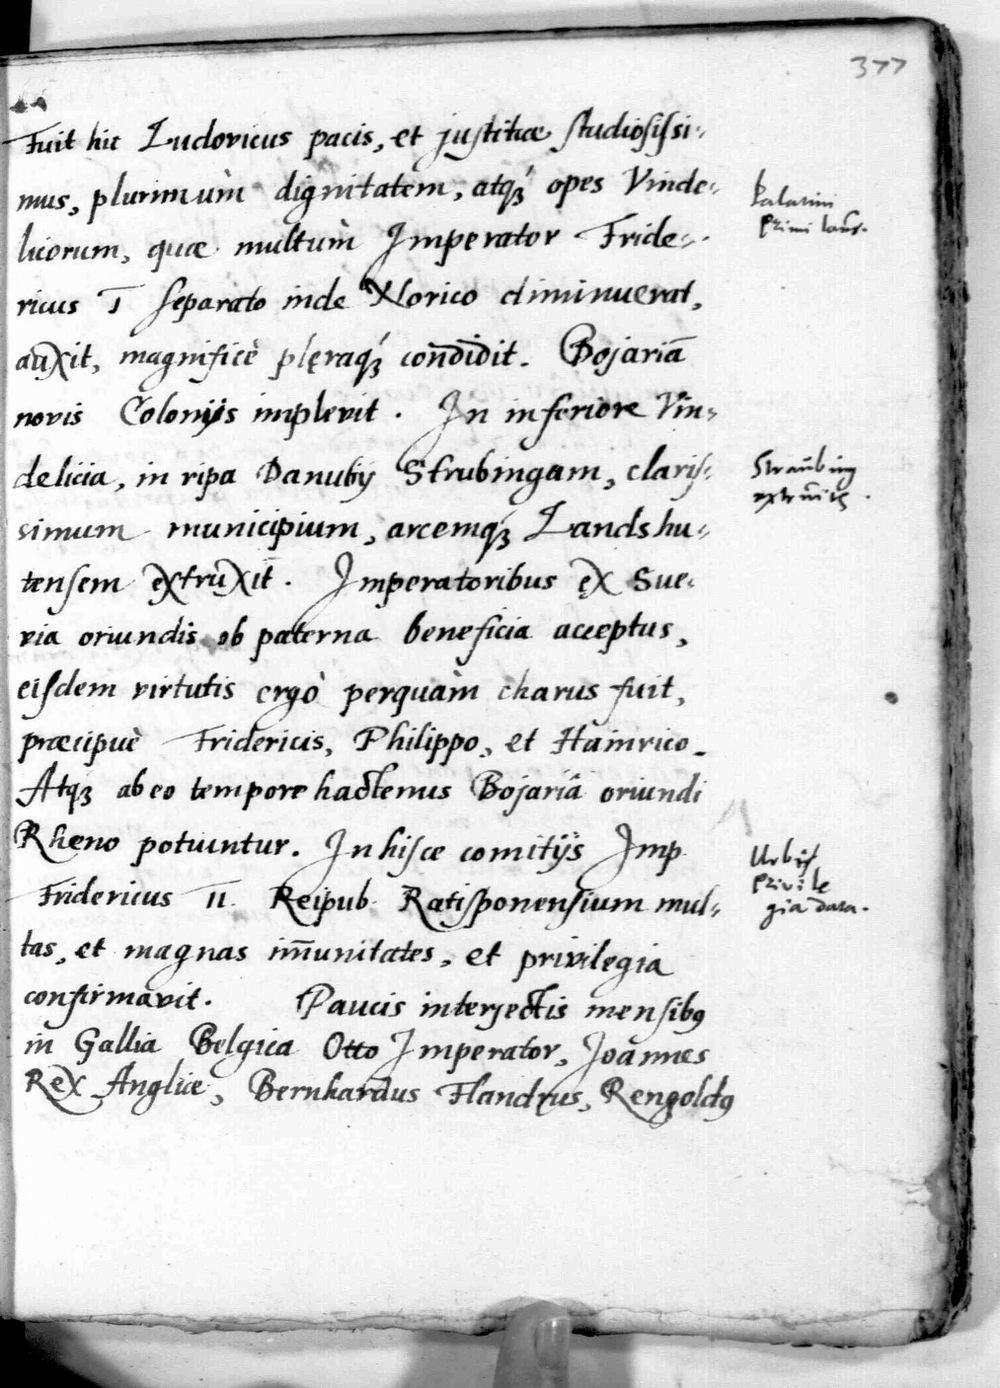 377
Fuit hic Ludovicus pacis, et justitiæ studiosissi-
mus, plurimùm dignitatem, atq́ꝫ opes Vinde-
licorum, quæ multùm Imperator Fride-
ricus I separato inde Norico diminuerat,
auxit, magnificè plęraq́ꝫ condidit. Bojariā
novis Colonijs implevit. In inferiore Vin-
delicia, in ripa Danubij Strubingam, claris-
simum municipium, arcemq́ꝫ Landshu-
tensem extruxit. Imperatoribus ex Sue-
via oriundis ob paterna beneficia acceptus,
eisdem virtutis ergò perquàm charus fuit,
præcipuè Fridericis, Philippo, et Hainrico.
Atqꝫ ab eo tempore hactenus Bojariâ oriundi
Rheno potiuntur. In hisce comitijs Imp.
Fridericus II. Reipub. Ratisponensium mul-
tas, et magnas im̄unitates, et privilegia
confirmavit. Paucis interjectis mensibꝰ
in Gallia Belgica Otto Imperator, Joannes
Rex Angliæ, Bernhardus Flandrus, Rengoldꝰ
Palatini
primi laus.
Straubing
extruitur.
Urbis
privile
gia data.